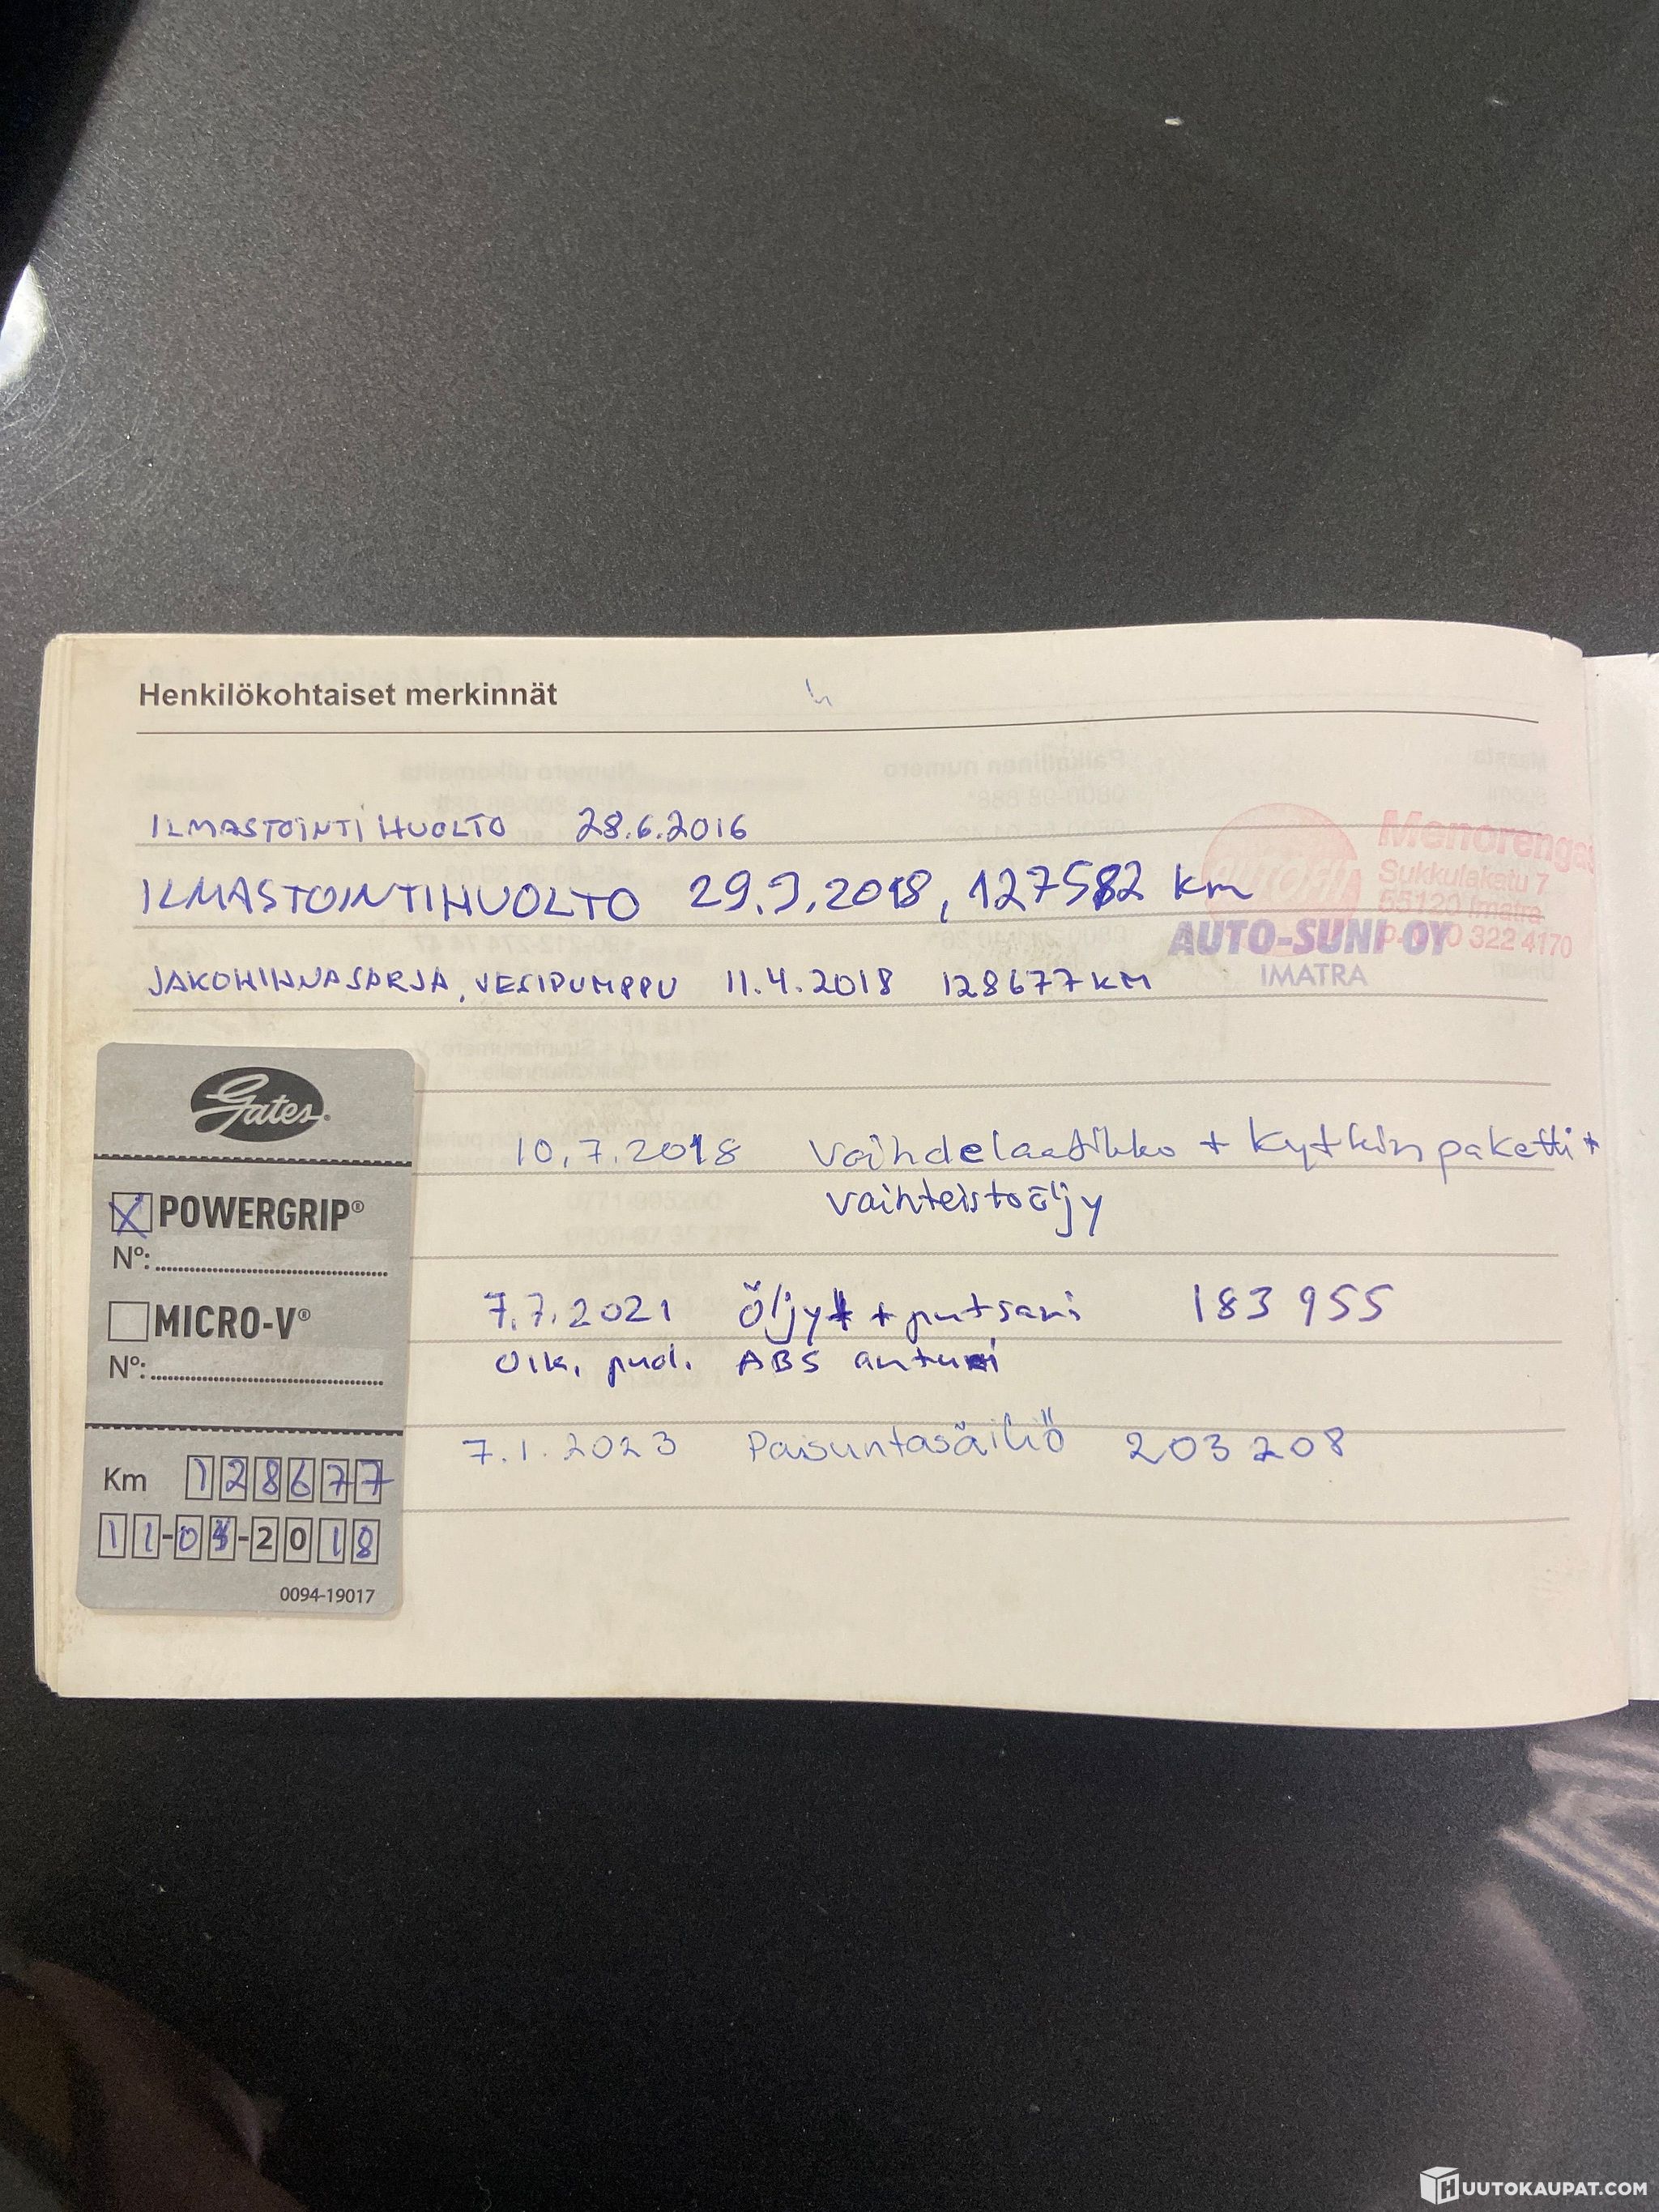 Henkilökohtaiset merkinnät
ILMASTOINTI HUOLTO 28.6.2016
ILMASTOINTIHUOLTO 29.3.2018, 127582 km
Menorengas
Sukkulakatu 7
55120 Imatra
322 4170
AUTO-SUNI OY
IMATRA
JAKOHIHNASARJA, VESIPUMPPU 11.4.2018 128677 KM
Gates
10.7.2018 Vaihdelaatikko + Kytkinpaketti +
vaihteistoöljy
POWERGRIP®
Nº:
7.7.2021 Öljyt + putsari 183 955
MICRO-V®
Nº:
Oik. puol. ABS anturi
7.1.2023 Paisuntasäiliö 203 208
Km 128677
11-04-2018
0094-19017
HUUTOKAUPAT.COM